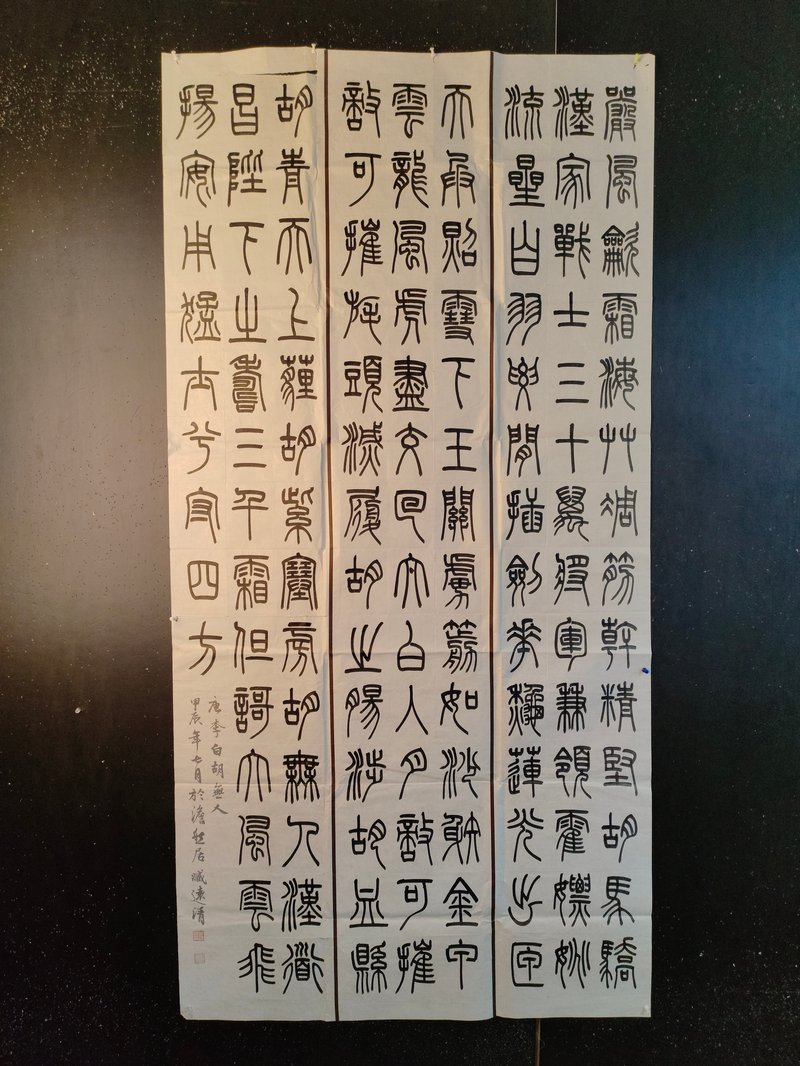 嚴風龡霜海艸凋筋幹精堅胡馬驕
漢家戰士三十萬將軍兼領霍嫖姚
流星白羽腰間插劍花秋蓮光出匣
天兵照雪下玉關虜箭如沙射金甲
雲龍風虎盡交回太白入月敵可摧
敵可摧旄頭滅履胡之腸涉胡血縣
胡青天上薶胡紫塞旁胡無人漢道
昌陛下之壽三千霜但謌大風雲飛
揚安用猛士兮守四方
唐李白胡無人
甲辰年七月於澹然居臧遠清